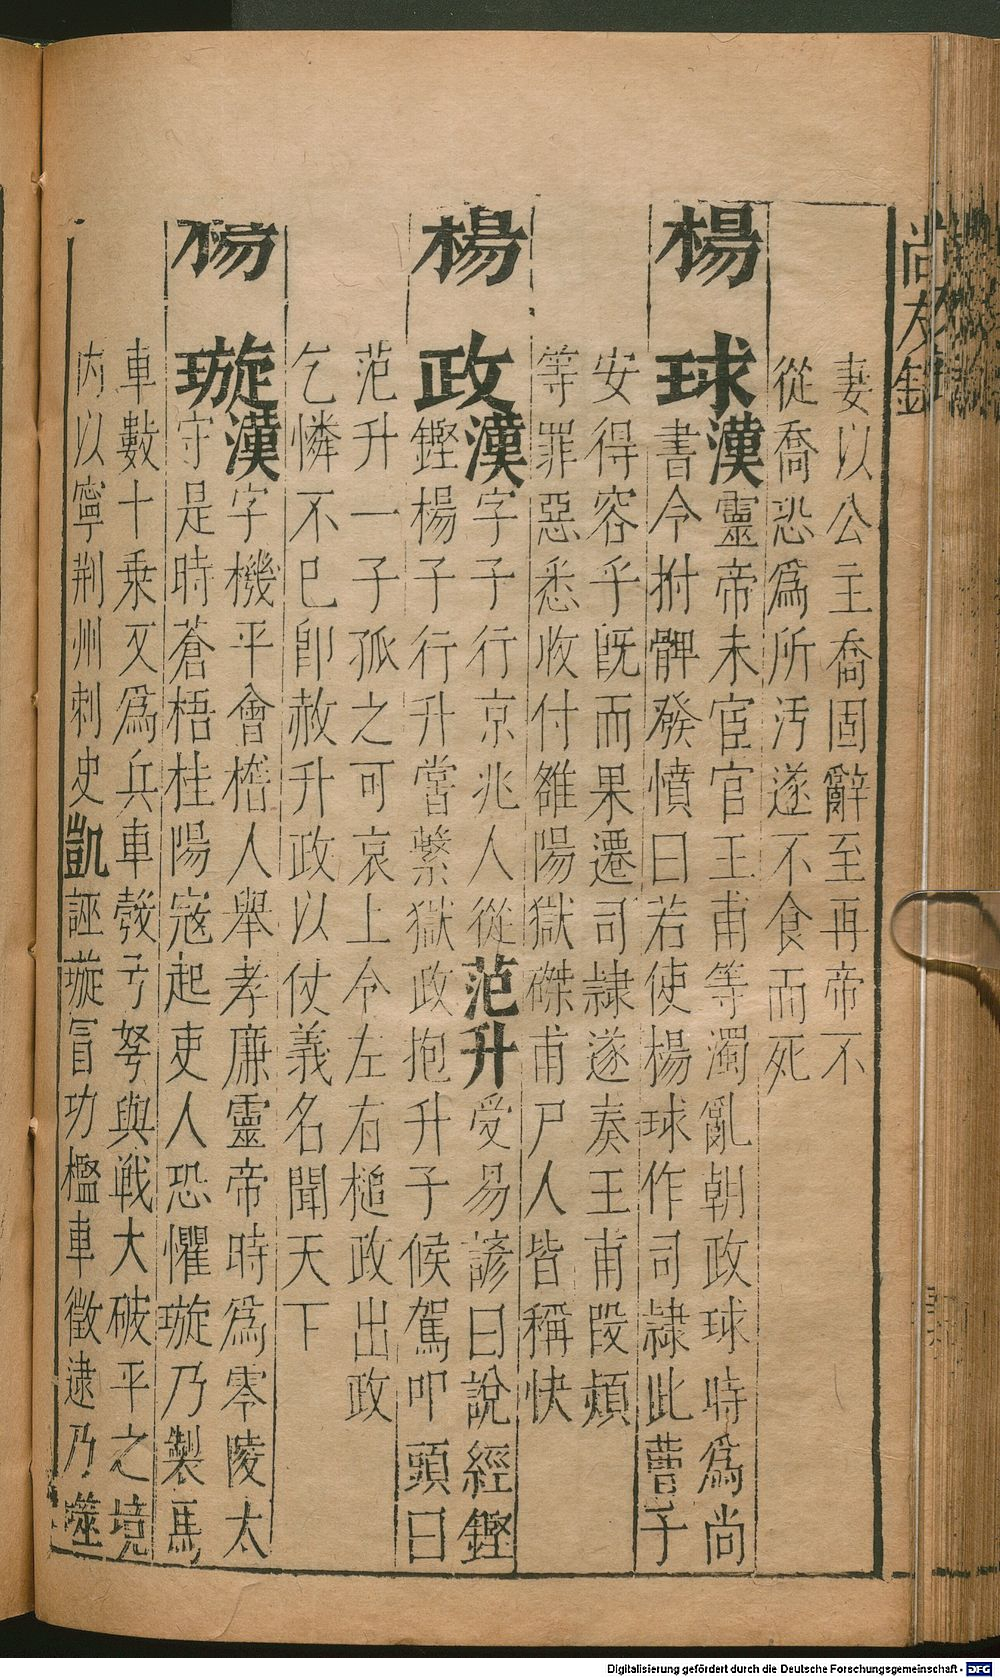 尚友錄
妻以公主喬固辭至再帝不
從喬恐爲所汚遂不食而死
楊球漢靈帝末宦官王甫等濁亂朝政球時爲尚
書令拊髀發憤曰若使楊球作司隷此曹子
安得容乎旣而果遷司隷遂奏王甫段熲
等罪惡悉收付雒陽獄磔甫尸人皆稱快
楊政漢字子行京兆人從范升受易諺曰說經鏗
鏗楊子行升嘗繫獄政抱升子候駕叩頭曰
范升一子孤之可哀上令左右槌政出政
乞憐不已卽赦升政以仗義名聞天下
楊璇漢字機平會稽人舉孝廉靈帝時爲零陵太
守是時蒼梧桂陽寇起吏人恐懼璇乃製馬
車數十乘又爲兵車彀弓弩與戰大破平之境
内以寧荆州刺史凱誣璇冒功檻車徵逮乃噬
Digitalisierung gefördert durch die Deutsche Forschungsgemeinschaft - DFG